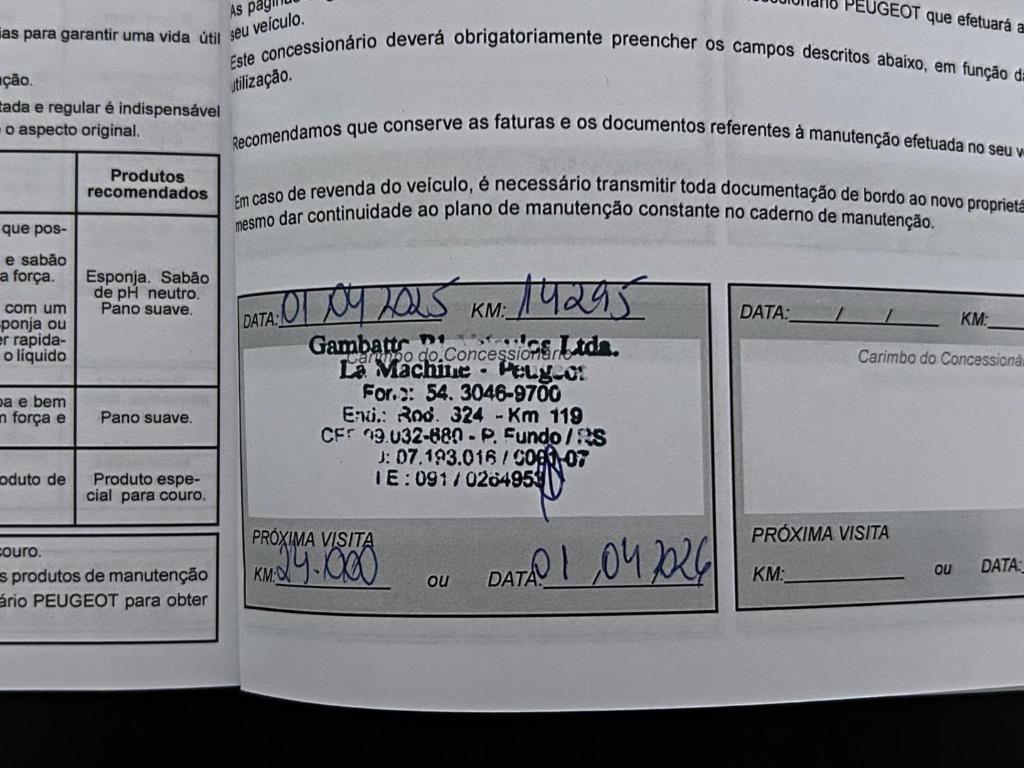 as para garantir uma vida útil
ção.
tada e regular é indispensável
o aspecto original.
Produtos
recomendados
que pos-
e sabão
a força.
com um
ponja ou
er rapida-
o líquido
Esponja. Sabão
de pH neutro.
Pano suave.
pa e bem
m força e
Pano suave.
oduto de
Produto espe-
cial para couro.
couro.
s produtos de manutenção
ário PEUGEOT para obter
As
PEUGEOT que efetuará a
seu veículo.
Este concessionário deverá obrigatoriamente preencher os campos descritos abaixo, em função da
utilização.
Recomendamos que conserve as faturas e os documentos referentes à manutenção efetuada no seu v
Em caso de revenda do veículo, é necessário transmitir toda documentação de bordo ao novo proprietá
mesmo dar continuidade ao plano de manutenção constante no caderno de manutenção.
DATA: 01 04 2025 KM: 14295
Carimbo do Concessionário
Gambatto Ltda.
La Machine - Peugeot
Fone: 54. 3046-9700
End.: Rod. 324 - Km 119
99.032-680 - P. Fundo / RS
07.193.016 /
I E : 091 /
PRÓXIMA VISITA
KM: 24.000 ou DATA: 01 04 2026
DATA: / / KM:
Carimbo do Concessioná
PRÓXIMA VISITA
KM: ou DATA: